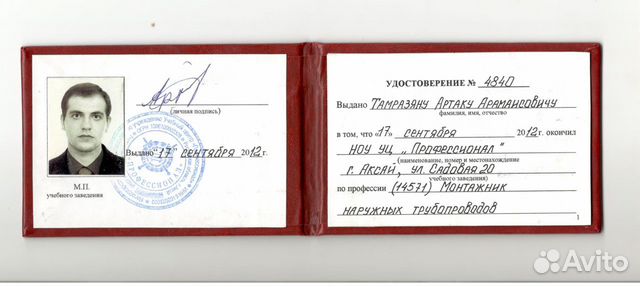 (личная подпись)
Выдано "17" сентября 2012г.
ПРОФЕССИОНАЛ
М.П.
учебного заведения
УДОСТОВЕРЕНИЕ № 4840
Выдано Тамразяну Артаку Арамаисовичу
фамилия, имя, отчество
в том, что 17 сентября 2012г. окончил
НОУ УЦ „Профессионал"
(наименование, номер и местонахождение
г. Аксай, ул. Садовая 20
учебного заведения)
по профессии (14571) Монтажник
наружных трубопроводов
1
Avito